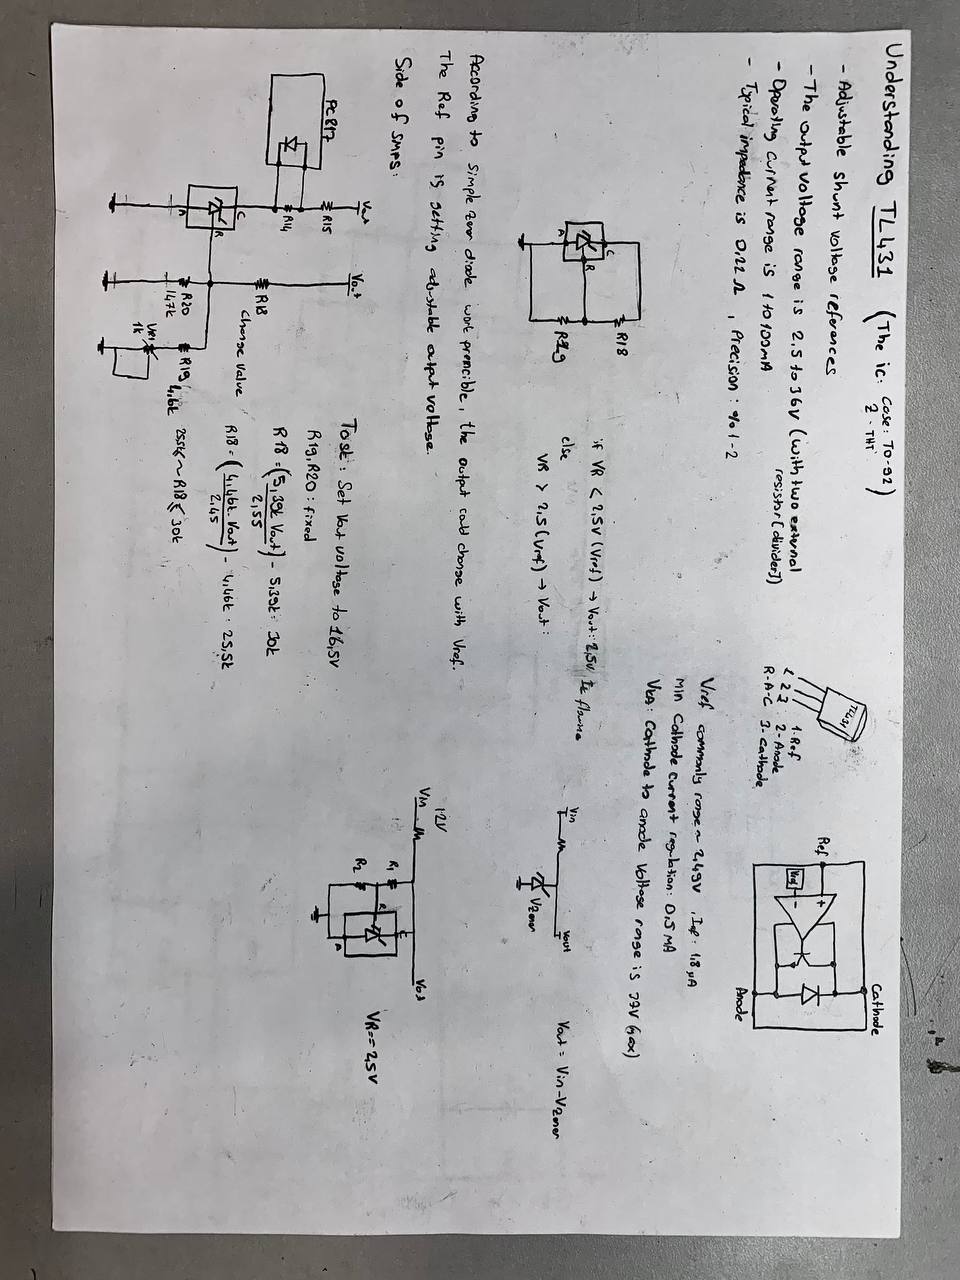 Understanding TL431 (The ic: Case: TO-92
2 - THT)
- Adjustable shunt voltage references
- The output voltage range is 2,5 to 36V (with two external
resistor [divider])
- Operating current range is 1 to 100mA
- Typical impedance is 0,22 Ω , Precision : %1-2
TL431
1 2 3
R-A-C
1-Ref
2- Anode
3- Cathode
Cathode
Ref
+
Vref
-
Anode
Vref commonly range ~ 2,49V , Iref: 1,8 µA
Min Cathode current regulation: 0,5 MA
VKA: Cathode to anode Voltage range is 37V (max)
C
R
A
R18
R19
if VR < 2,5V (Vref) → Vout: 2,5V
else
VR > 2,5 (Vref) → Vout:
Vin
Vout
Vzener
Vout = Vin-Vzener
According to simple zener diode work prencible, the output could change with Vref.
The Ref pin is getting adjustable output voltage.
12V
Vin
Vout
R1
R2
C
R
A
VR== 2,5V
Side of SMPS:
PC817
Vout
R15
R14
C
R
A
Vout
R18
Change Value
R20
147k
R19
4,6k
VR1
1k
Task: Set Vout voltage to 16,5V
R19, R20 : fixed
R18 = (5,39k Vout / 2,55) - 5,39k: 30k
R18 = (4,46k. Vout / 2,45) - 4,46k : 25,5k
25,5k ≤ ~ R18 ≤ 30k